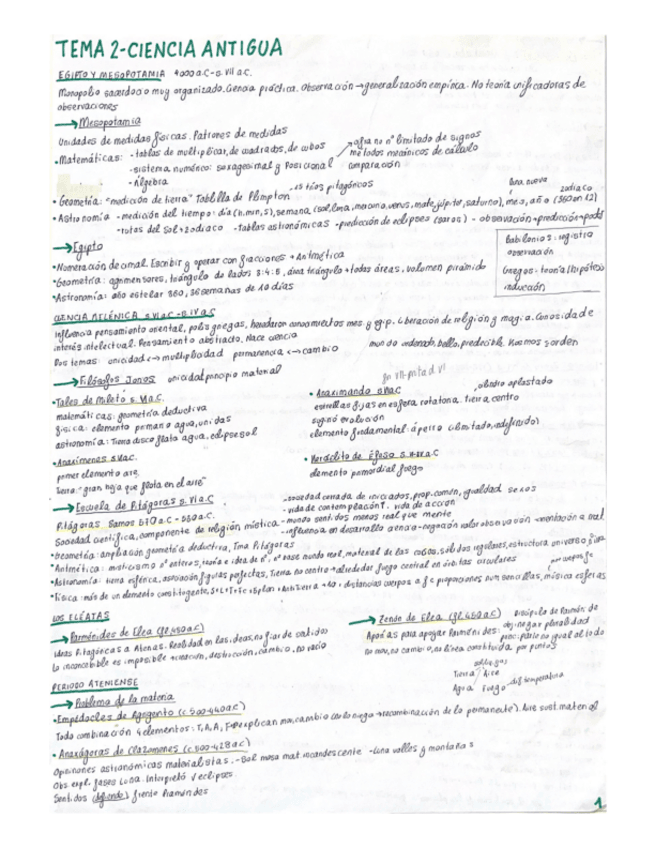 TEMA 2-CIENCIA ANTIGUA
EGIPTO Y MESOPOTAMIA 4000 a.C-s. VII a.C.
Monopolio sacerdocio muy organizado. Ciencia práctica. Observación → generalización empírica. No teoría unificadoras de
observaciones
→ Mesopotamia
Unidades de medidas físicas. Patrones de medidas
• Matemáticas: - tablas de multiplicar, de cuadrados, de cubos
- sistema numérico: sexagesimal y posicional
- Álgebra
nº limitado de signos
métodos mecánicos de cálculo
comparación
• Geometría: "medición de tierra" Tablilla de Plimpton - 15 tríos pitagóricos
luna nueva
zodiaco
• Astronomía - medición del tiempo: día (h, min, s), semana (sol, luna, mercurio, venus, marte, júpiter, saturno), mes, año (360 en 12)
- rutas del sol → zodiaco - tablas astronómicas - predicción de eclipses (saros) - observación → predicción →
→ Egipto
• Numeración decimal. Escribir y operar con fracciones → Aritmética
• Geometría: agrimensores, triángulo de lados 3:4:5, área triángulo → todas áreas, volumen pirámide
• Astronomía: año estelar 360, 36 semanas de 10 días
Babilonios: registro
observación
Griegos: teoría (hipótesis)
inducción
CIENCIA HELÉNICA s. VI a.C - s. IV a.C
Influencia pensamiento oriental, polis griegas, heredaron conocimientos mes y egip. Liberación de religión y magia. Curiosidad e
interés intelectual. Pensamiento abstracto. Nace ciencia
mundo ordenado, bello, predecible. Kosmos → orden
Dos temas: unicidad <-> multiplicidad permanencia <-> cambio
→ Filósofos Jonios unicidad principio material
• Tales de Mileto s. VI a.C.
matemáticas: geometría deductiva
física: elemento primario agua, unidas
astronomía: Tierra disco flota agua, eclipse sol
fin VII-mitad VI
• Anaximandro s VI a.C
cilindro aplastado
estrellas fijas en esfera rotatoria. tierra centro
sugirió evolución
elemento fundamental: ápeiro (ilimitado, indefinido)
• Anaxímenes s. VI a.C.
primer elemento aire
tierra: "gran hoja que flota en el aire"
• Heráclito de Éfeso s. VI-V a.C
elemento primordial fuego
→ Escuela de Pitágoras s. VI a.C
Pitágoras Samos 570 a.C - 550 a.C.
Sociedad científica, componente de religión mística
- sociedad cerrada de iniciados, prop. común, igualdad sexos
- vida de contemplación ↑. vida de acción
- mundo sentidos menos real que mente
- influencia en desarrollo ciencia - negación valor observación
• Geometría: ampliación geometría deductiva, Tma Pitágoras
• Aritmética: misticismo nº enteros, teoría e idea de nº, nº base mundo real, material de las cosas, sólidos regulares, estructura universo
• Astronomía: tierra esférica, asociación figuras perfectas, Tierra no centro → alrededor fuego central en órbitas circulares
• Física: más de un elemento constituyente, distancias cuerpos a fc proporciones num sencillas, música esferas
LOS ELÉATAS
→ Parménides de Elea (fl. 480 a.C)
Ideas Pitagóricas a Atenas. Realidad en las ideas, no fiar de sentidos
Lo inconcebible es imposible → creación, destrucción, cambio, no vacío
→ Zenón de Elea (fl. 450 a.C)
Discípulo de Parmén. de
Aporías para apoyar Parménides: obj: negar pluralidad
no mov, no cambio, no línea constituida por puntos
Tierra Aire
Agua Fuego
dif temperatura
PERIODO ATENIENSE
→ Problema de la materia
• Empédocles de Agrigento (c. 500-440 a.C)
Todo combinación 4 elementos: T, A, A, F → explican mov, cambio (no lo niega → recombinación de lo permanente). Aire sust. material
• Anaxágoras de Clazomenes (c. 500-428 a.C)
Opiniones astronómicas materialistas. - Sol masa mat. incandescente - Luna valles y montañas
Obs. expl. fases Luna. Interpretó eclipses
Sentidos (defiende) frente Parménides
1